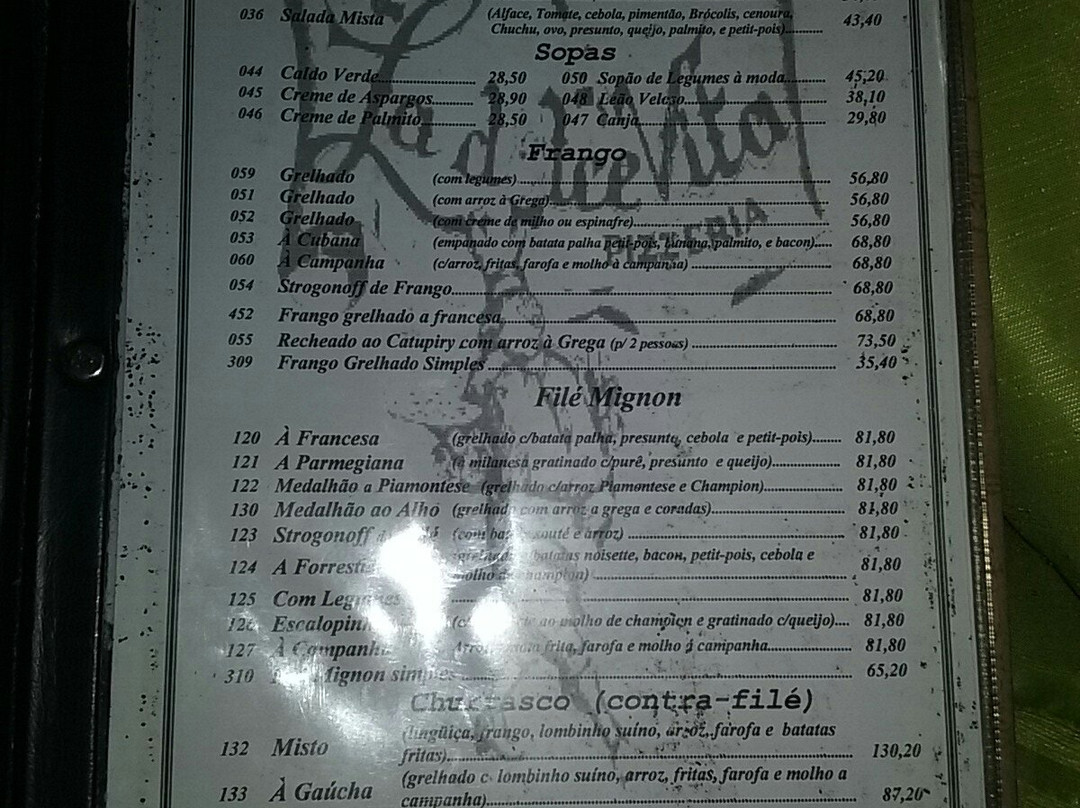 036 Salada Mista (Alface, Tomate, cebola, pimentão, Brócolis, cenoura, 43,40
Chuchu, ovo, presunto, queijo, palmito, e petit-pois)
Sopas
044 Caldo Verde 28,50 050 Sopão de Legumes à moda 45,20
045 Creme de Aspargos 28,90 048 Leão Veloso 38,10
046 Creme de Palmito 28,50 047 Canja 29,80
La dolce Vita
PIZZERIA
Frango
059 Grelhado (com legumes) 56,80
051 Grelhado (com arroz à Grega) 56,80
052 Grelhado (com creme de milho ou espinafre) 56,80
053 À Cubana (empanado com batata palha petit-pois, banana, palmito, e bacon) 68,80
060 À Campanha (c/arroz, fritas, farofa e molho à campanha) 68,80
054 Strogonoff de Frango 68,80
452 Frango grelhado a francesa 68,80
055 Recheado ao Catupiry com arroz à Grega (p/ 2 pessoas) 73,50
309 Frango Grelhado Simples 35,40
Filé Mignon
120 À Francesa (grelhado c/batata palha, presunto, cebola e petit-pois) 81,80
121 A Parmegiana (à milanesa gratinado c/purê, presunto e queijo) 81,80
122 Medalhão a Piamontese (grelhado c/arroz Piamontese e Champion) 81,80
130 Medalhão ao Alho (grelhado com arroz a grega e coradas) 81,80
123 Strogonoff (com souté e arroz) 81,80
124 A batatas noisette, bacon, petit-pois, cebola e 81,80
champion)
125 Com 81,80
126 ao molho de champion e gratinado c/queijo) 81,80
127 À Campanha frita, farofa e molho à campanha 81,80
310 Mignon simples 65,20
Churrasco (contra-filé)
132 Misto (lingüiça, frango, lombinho suíno, arroz, farofa e batatas
fritas) 130,20
133 À Gaúcha (grelhado c lombinho suíno, arroz, fritas, farofa e molho a
campanha) 87,20